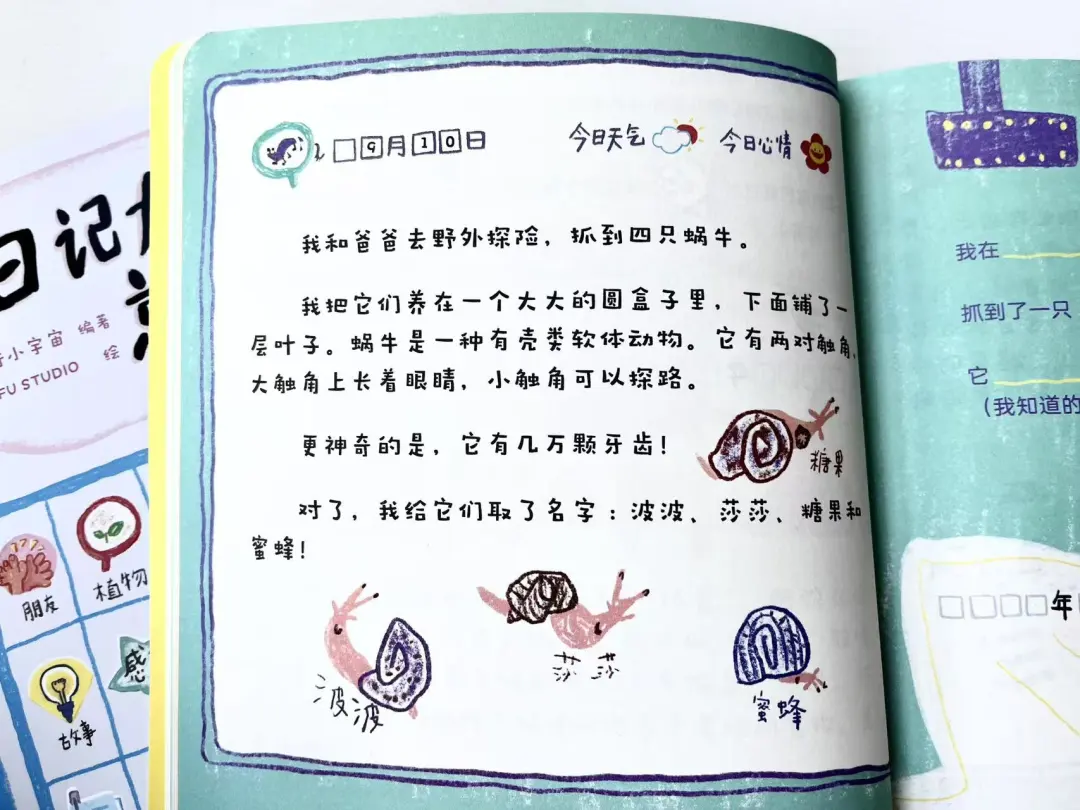 □9月10日 今日天气 今日心情
我和爸爸去野外探险，抓到四只蜗牛。
我把它们养在一个大大的圆盒子里，下面铺了一
层叶子。蜗牛是一种有壳类软体动物。它有两对触角，
大触角上长着眼睛，小触角可以探路。
更神奇的是，它有几万颗牙齿！
糖果
对了，我给它们取了名字：波波、莎莎、糖果和
蜜蜂！
波波
莎莎
蜜蜂
日记
小宇宙 编著
FU STUDIO 绘
朋友
植物
故事
感
我在
抓到了一只
它
（我知道的
□□□□年